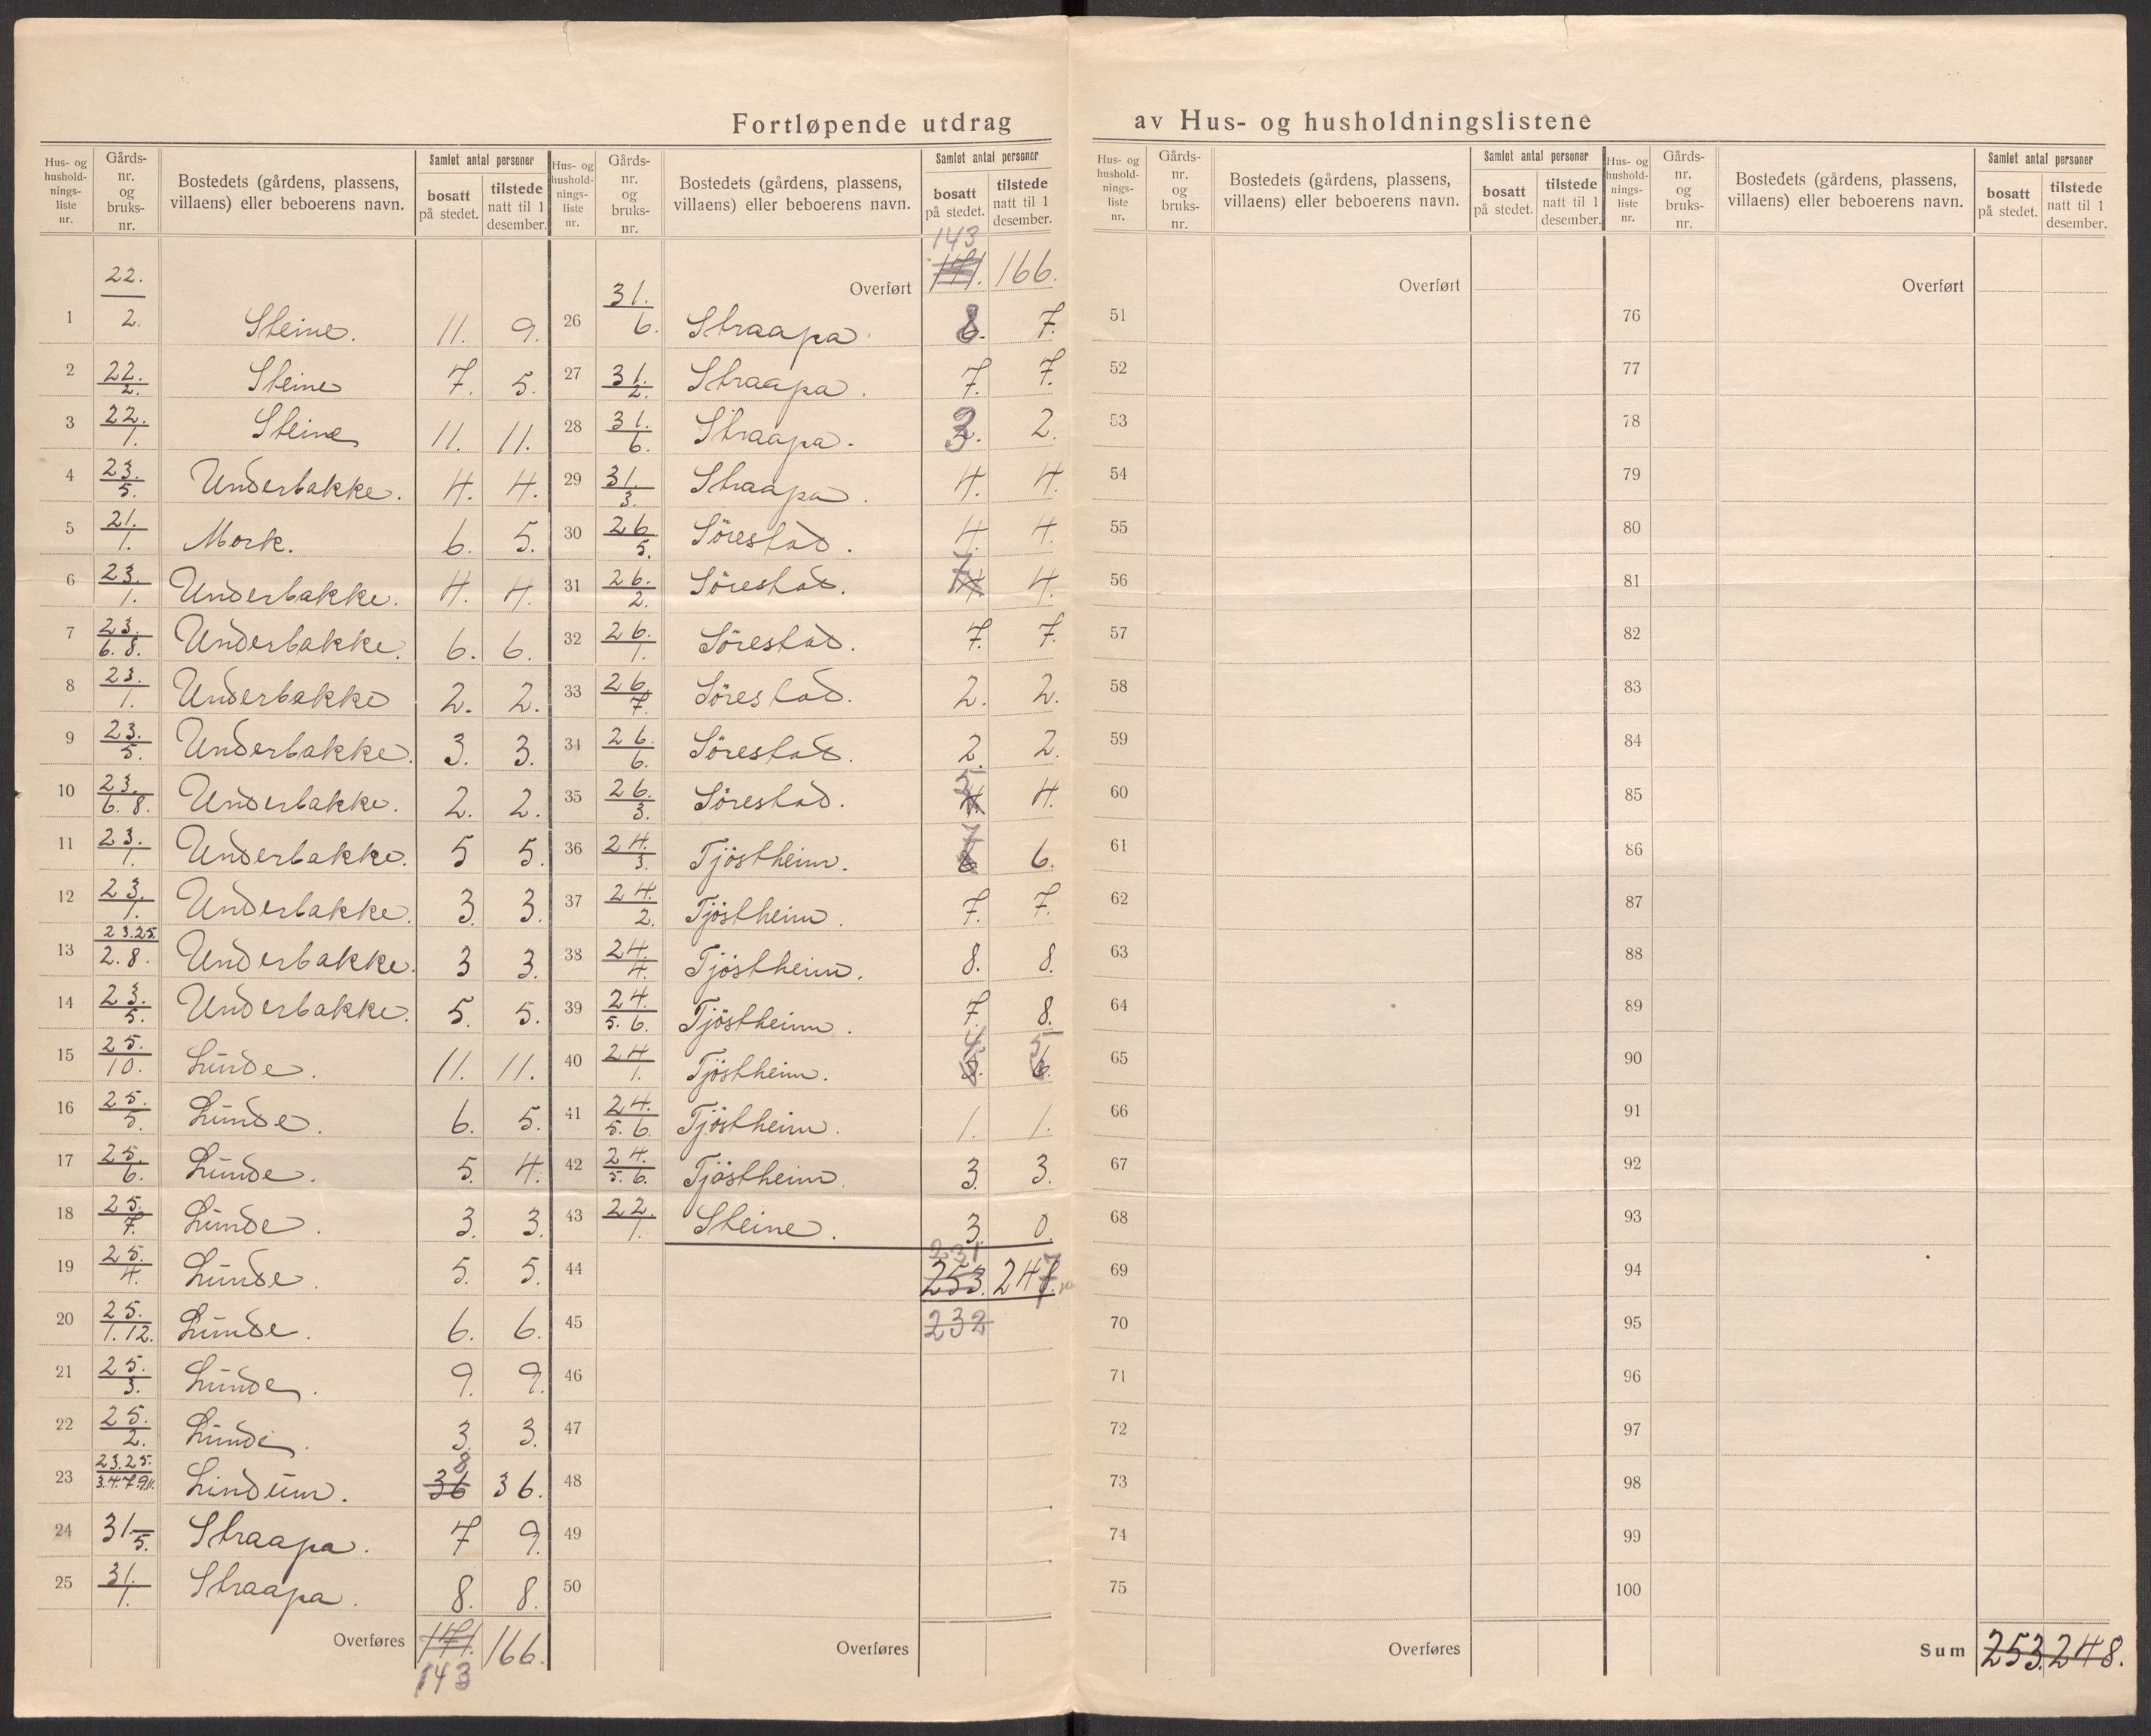 Fortløpende utdrag av Hus- og husholdningslistene
Hus- og husholdnings-liste nr. | Gårds-nr. og bruks-nr. | Bostedets (gårdens, plassens, villaens) eller beboerens navn. | Samlet antal personer | bosatt på stedet. | tilstede natt til 1 desember.
1 22. 2. Steine. 11. 9.
2 22. 2. Steine 7. 5.
3 22. 1. Steine 11. 11.
4 23. 5. Underbakke. 4. 4.
5 21. 1. Mork. 6. 5.
6 23. 1. Underbakke. 4. 4.
7 23. 6. 8. Underbakke. 6. 6.
8 23. 1. Underbakke 2. 2.
9 23. 5. Underbakke. 3. 3.
10 23. 6. 8. Underbakke. 2. 2.
11 23. 1. Underbakke. 5 5.
12 23. 1. Underbakke. 3. 3.
13 23.25. 2. 8. Underbakke. 3 3.
14 23. 5. Underbakke. 5. 5.
15 25. 10. Lunde. 11. 11.
16 25. 5. Lunde. 6. 5.
17 25. 6. Lunde. 5. 4.
18 25. 7. Lunde. 3. 3.
19 25. 4. Lunde. 5. 5.
20 25. 1. 12. Lunde. 6. 6.
21 25. 3. Lunde. 9. 9.
22 25. 2. Lunde. 3. 3.
23 23.25. 3.4.7.9.11. Lindum. 36 8 36.
24 31. 5. Straapa. 7 9.
25 31. 1. Straapa. 8. 8.
Overføres 171. 166.
143
Hus- og husholdnings-liste nr. | Gårds-nr. og bruks-nr. | Bostedets (gårdens, plassens, villaens) eller beboerens navn. | Samlet antal personer | bosatt på stedet. | tilstede natt til 1 desember.
143
Overført 171. 166.
26 31. 6. Straapa. 8. 7.
27 31. 2. Straapa. 7. 7.
28 31. 6. Straapa. 3. 2.
29 31. 3. Straapa. 4. 4.
30 26 5. Sörestad. 4. 4.
31 26. 2. Sörestad. 7 4. 4.
32 26. 1. Sörestad. 7. 7.
33 26. 7. Sörestad. 2. 2.
34 26. 6. Sörestad. 2. 2.
35 26. 3. Sörestad. 5 4. 4.
36 24. 3. Tjöstheim. 7 6 6.
37 24. 2. Tjöstheim. 7. 7.
38 24. 4. Tjöstheim. 8. 8.
39 24. 5. 6. Tjöstheim. 7. 8.
40 24. 1. Tjöstheim. 4 5. 5 6.
41 24. 5. 6. Tjöstheim. 1. 1.
42 24. 5. 6. Tjöstheim. 3. 3.
43 22. 1. Steine. 3. 0.
231
44 253. 247.
45 232
46
47
48
49
50
Overføres
Hus- og husholdnings-liste nr. | Gårds-nr. og bruks-nr. | Bostedets (gårdens, plassens, villaens) eller beboerens navn. | Samlet antal personer | bosatt på stedet. | tilstede natt til 1 desember.
Overført
51
52
53
54
55
56
57
58
59
60
61
62
63
64
65
66
67
68
69
70
71
72
73
74
75
Overføres
Hus- og husholdnings-liste nr. | Gårds-nr. og bruks-nr. | Bostedets (gårdens, plassens, villaens) eller beboerens navn. | Samlet antal personer | bosatt på stedet. | tilstede natt til 1 desember.
Overført
76
77
78
79
80
81
82
83
84
85
86
87
88
89
90
91
92
93
94
95
96
97
98
99
100
Sum 253. 248.